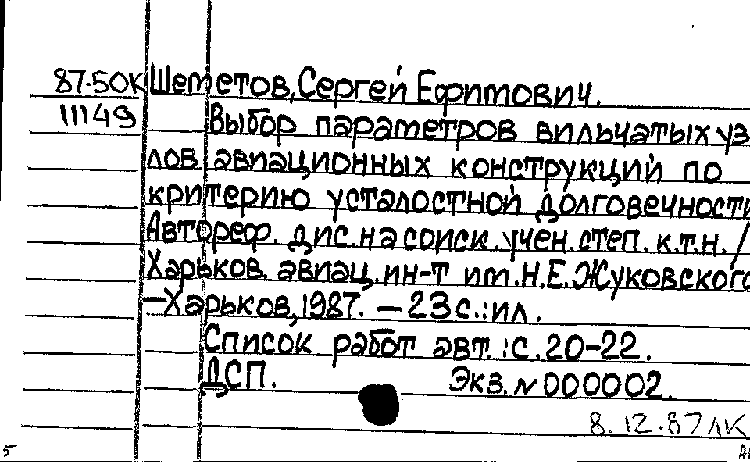 87-50К Шеметов, Сергей Ефимович.
11149 Выбор параметров вильчатых уз
лов авиационных конструкций по
критерию усталостной долговечности
Автореф. дис. на соиск. учен. степ. к.т.н. /
Харьков. авиац. ин-т им. Н.Е. Жуковского
—Харьков, 1987. — 23 с.: ил.
Список работ авт.: с. 20-22.
ДСП. Экз. N 000002.
8.12.87 лк
5